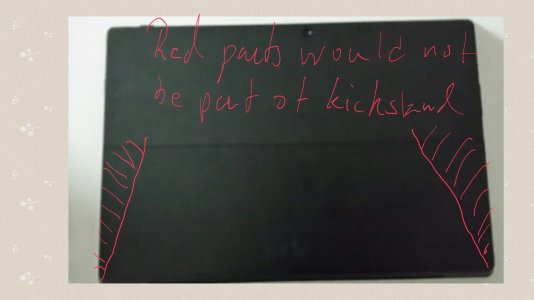 Red parts would not
be part of kickstand